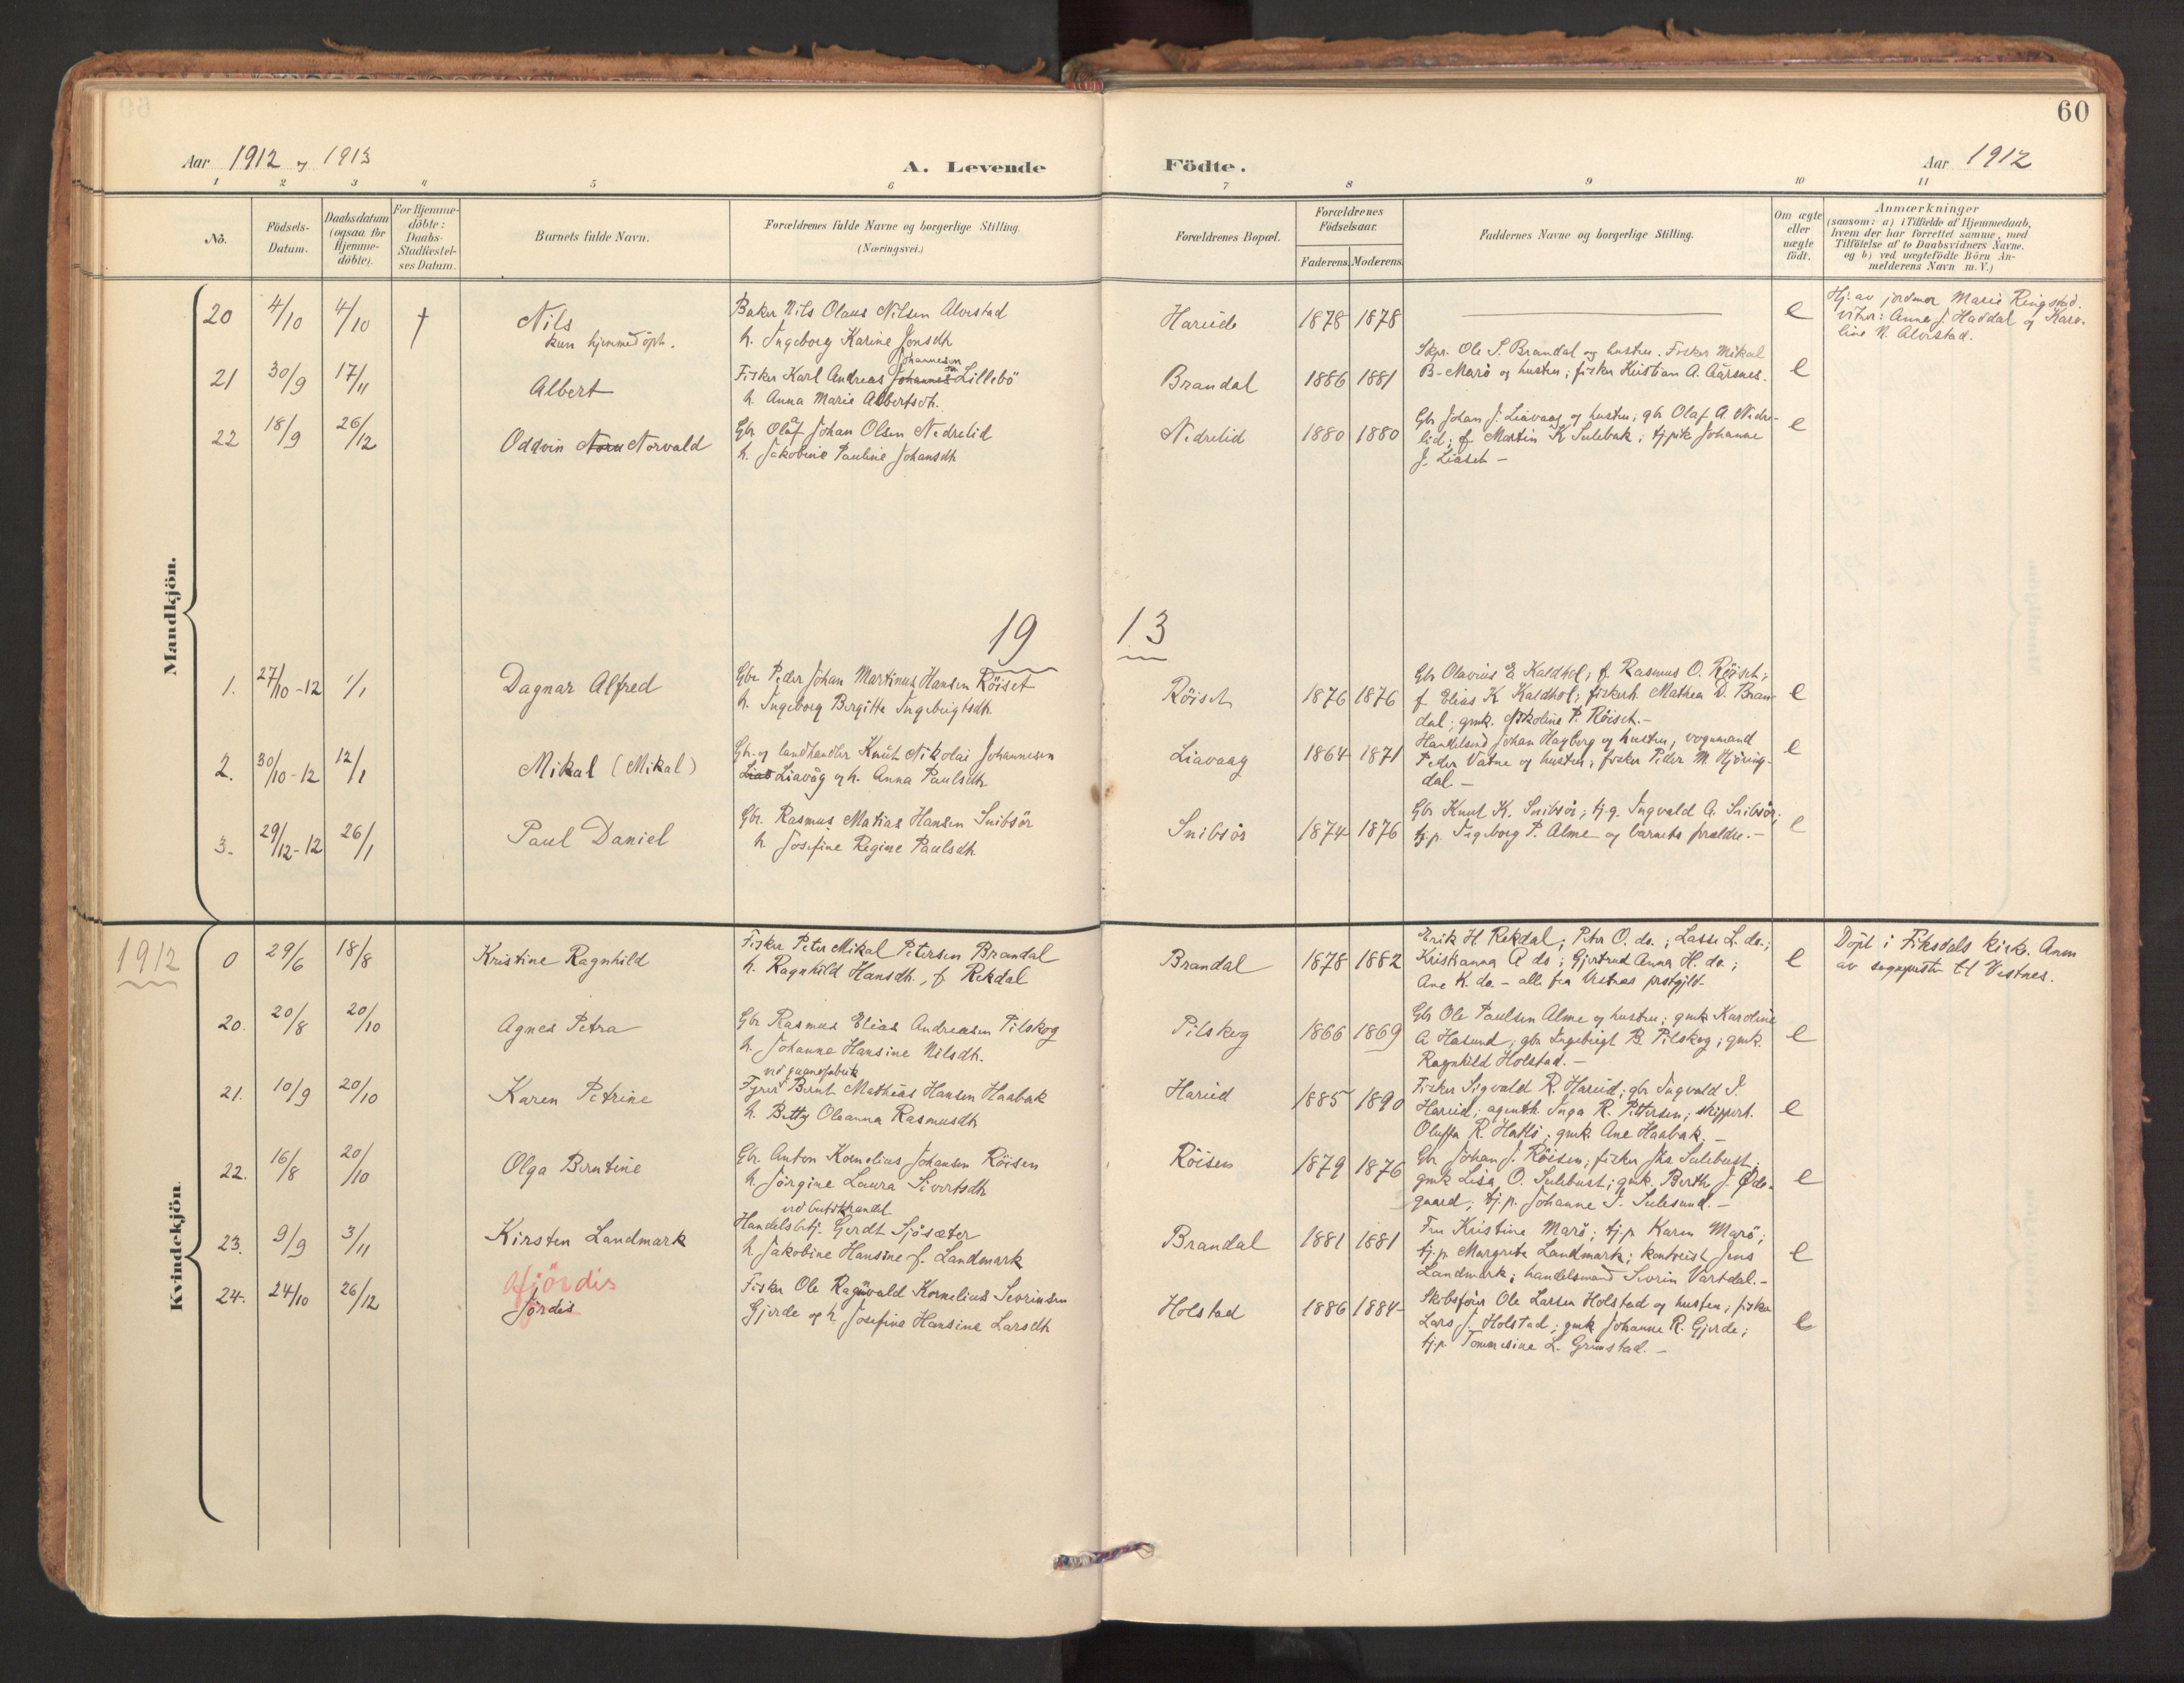 60
Aar 1912 og 1913
A. Levende Födte.
Aar 1912
1 2 3 4 5 6 7 8 9 10 11
No.
Födsels-
Datum.
Daabsdatum
(ogsaa for
Hjemme-
döbte).
For Hjemme-
döbte:
Daabs-
Stadfæstel-
ses Datum.
Barnets fulde Navn.
Forældrenes fulde Navne og borgerlige Stilling.
(Næringsvei.)
Forældrenes Bopæl.
Forældrenes
Födselsaar.
Faderens. Moderens.
Faddernes Navne og borgerlige Stilling.
Om ægte
eller
uægte
födt.
Anmærkninger
(saasom: a) i Tilfælde af Hjemmedaab,
hvem der har forrettet samme, med
Tilföielse af to Daabsvidners Navne.
og b) ved uægtefödte Börn An-
melderens Navn m. V.)
Mandkjön.
20 4/10 4/10 †
Nils
kun hjemmedöpt.
Baker Nils Olaus Nilsen Alvestad
h. Ingeborg Karine Jonsdh
Hareide 1878 1878
e
Hj. av jordmor Marie Ringstad.
vitner: Anne J. Haddal og Karo-
line N. Alvestad.
21 30/9 17/11
Albert
Johannesen
Fisker Karl Andreas Johannes Lillebö
h. Anna Marie Albertsdh.
Brandal 1886 1881
Skpr. Ole S. Brandal og hustru. Fisker Mikal
B. Marö og hustru; fisker Kristian A. Aarsnes.
e
22 18/9 26/12
Oddvin Norvald
Gbr Olaf Johan Olsen Nedrelid
h. Jakobine Pauline Johansdh
Nedrelid 1880 1880
Gbr Johan J. Liavaag og hustru; gbr Olaf A. Nedre-
lid; f. Martin K Sulebak; tj.pike Johanne
J. Liaset -
e
1913
1. 27/10-12 1/1
Dagnar Alfred
Gbr Peder Johan Martinus Hansen Röiset
h. Ingeborg Bergitte Ingebrigtsdh.
Röiset 1876 1876
Gbr Olavius E Kaldhol; f. Rasmus O. Röiset;
f Elias K Kaldhol; fiskerh. Mathea D. Bran-
dal; gmk. Nikoline P. Röiset.-
e
2. 30/10-12 12/1
Mikal (Mikal)
Gbr. og landhandler Knut Nikolai Johannesen
Liavåg og h. Anna Paulsdh
Liavaag 1864 1871
Handelsmd Johan Hagberg og hustru, vognmand
Peder Vatne og hustru, fisker Peder M Hjöring-
dal -
e
3. 29/12-12 26/1
Paul Daniel
Gbr. Rasmus Matias Hansen Snibsör
h. Josefine Regine Paulsdh
Snibsör 1874 1876
Gbr Knut K. Snibsör; tj.g. Ingvald A. Snibsör;
tj.p. Ingeborg P. Alme og barnets forældre.-
e
Kvindekjön
1912
0 29/6 18/8
Kristine Ragnhild
Fisker Peter Mikal Petersen Brandal
h. Ragnhild Hansdh., f. Rekdal
Brandal 1878 1882
Erik H Rekdal; Peter O. do.; Lasse L. do.;
Kristianna A do; Gjertrud Anna H. do.;
Ane K. do. - alle fra Vestnes prstgjld.
e
Döpt i Fiksdals kirke. Anm
av sogneprester til Vestnes.
20. 20/8 20/10
Agnes Petra
Gbr Rasmus Elias Andreasen Pilskog
h. Johanne Hansine Nilsdh.
Pilskog 1866 1869
Gbr Ole Paulsen Alme og hustru; gmk Karoline
A Hasund; gbr Ingebrigt B. Pilskog; gmk.
Ragnhild Holstad.-
e
21. 10/9 20/10
Karen Petrine
ved guanofabrik
Fyrer Bernt Mathias Hansen Haabak
h. Betty Oleanna Rasmusdh
Hareid 1885 1890
Fisker Sigvald R. Hareid; gbr Ingvald J.
Hareid; agenth. Inga R. Pettersen; skipperh.
Oluffa R. Hatlö; gmk. Ane Haabak.-
e
22. 16/8 20/10
Olga Berntine
Gbr. Anton Kornelius Johansen Röisen
h. Jörgine Laura Sivertsdh
Röisen 1879 1876
Gbr Johan J. Röisen; fisker Jhs Sulebust;
gmk Lisa O. Sulebust; gmk. Berthe J. Öde-
gaard; tj.p. Johanne S. Sulesund.-
e
23. 9/9 3/11
Kirsten Landmark
Handelsbetj. Gerdt Sjösæter
h. Jakobine Hansine f. Landmark
Brandal 1881 1881
Fru Kristine Marö; tj.p. Karen Marö;
tj.p. Margrete Landmark; kontorist Jens
Landmark; handelsmand Severin Vartdal.-
e
24. 24/10 26/12
Hjördis
Jördis
Fisker Ole Ragnvald Kornelius Severinsen
Gjerde og h. Josefine Hansine Larsdh
Holstad 1886 1884
Skibsförer Ole Larsen Holstad og hustru; fisker
Lars J. Holstad; gmk Johanne R. Gjerde;
tj.p. Tommesine L. Grimstad.-
e